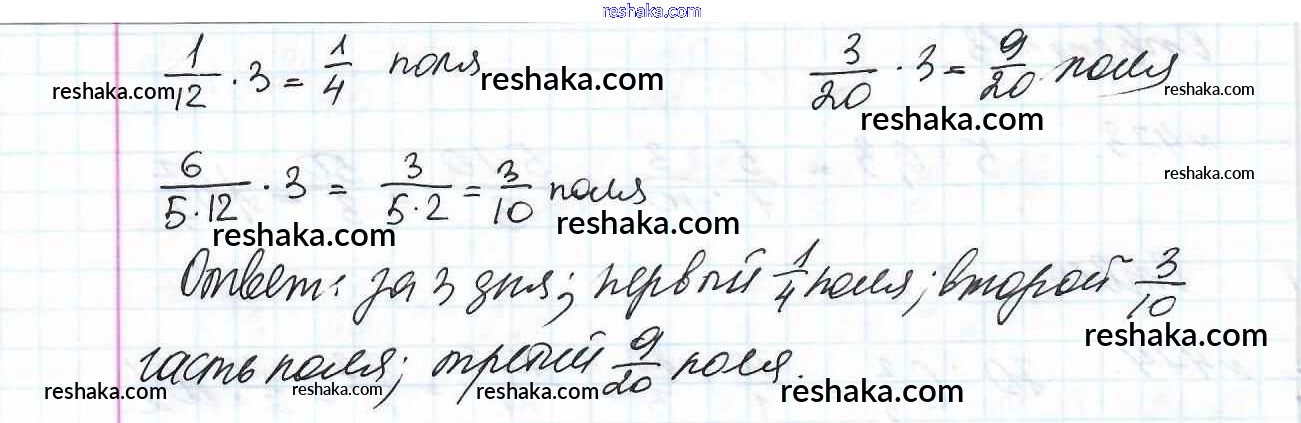 reshaka.com
1/12 · 3 = 1/4 поля
3/20 · 3 = 9/20 поля
reshaka.com
reshaka.com
reshaka.com
reshaka.com
reshaka.com
6/(5·12) · 3 = 3/(5·2) = 3/10 поля
reshaka.com
reshaka.com
Ответ: за 3 дня; первый 1/4 поля; второй 3/10
reshaka.com
часть поля; третий 9/20 поля.
reshaka.com
reshaka.com
reshaka.com
reshaka.com